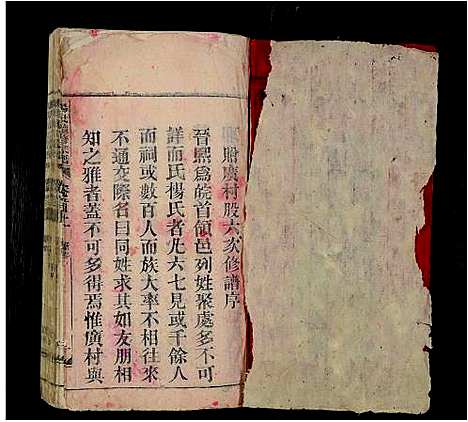 贈廣村股六次修譜序
晉熙為皖首領邑列姓聚處多不可
詳而氏楊氏者凡六七見或千餘人
而祠或數百人而族大率不相往來
不通交際名曰同姓求其如友朋相
知之雅者蓋不可多得焉惟廣村與